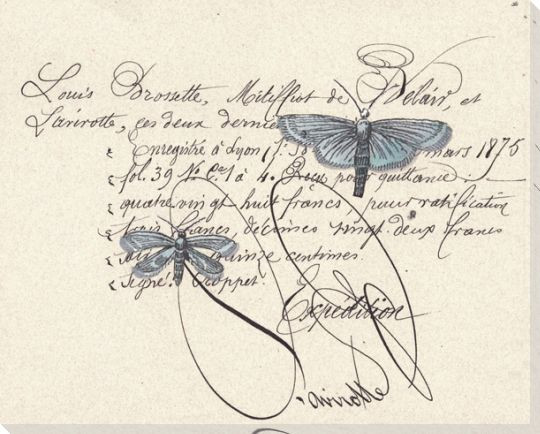 Louis Brossette, Métiffiot de Delair, et
Lavirotte, ces deux dernie
Enregistré à Lyon mars 1875
fol. 39 N° 4. Reçu pour quittance:
quatre vingt huit francs, pour ratification
trois francs, décimes vingt deux francs
quinze centimes.
Signé:
Expédition